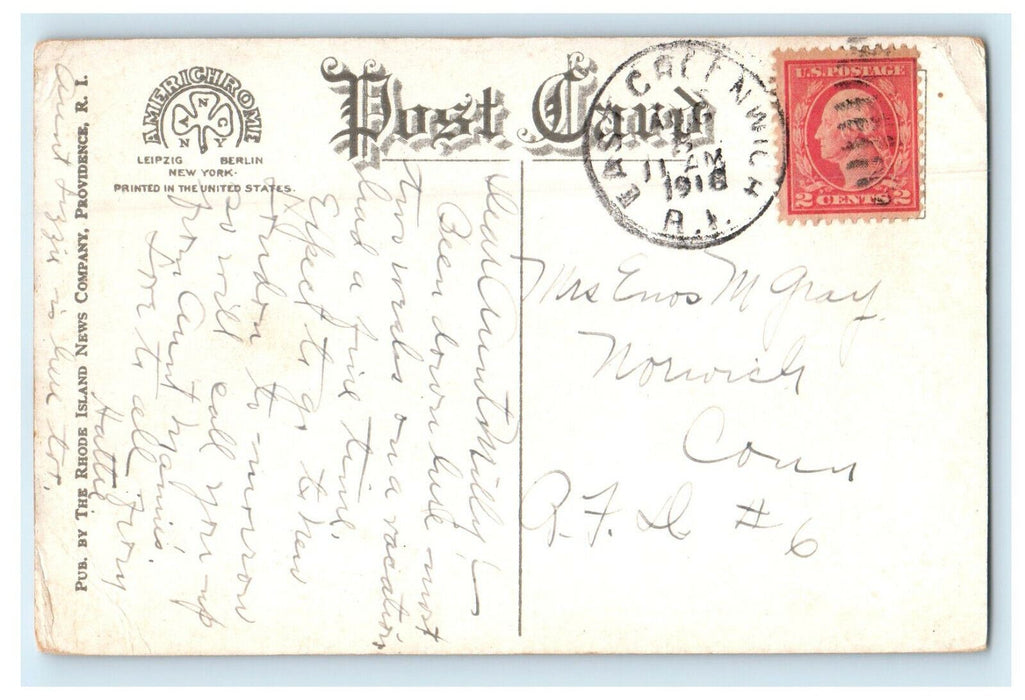 AMERICHROME
N
N G
N Y
LEIPZIG BERLIN
NEW YORK
PRINTED IN THE UNITED STATES.
Post Card
EAST GREENWICH
AUG
11 AM
1918
R.I.
U.S. POSTAGE
2 CENTS 2
PUB. BY THE RHODE ISLAND NEWS COMPANY, PROVIDENCE, R. I.
Dear Aunt Milly:—
Been down here most
two weeks on a vacation
had a fine time.
Expect to go to New
London to-morrow
so will call you up
from Aunt Mamie's
Love to all from
Hattie
Aunt Lizzie is here too.
Mrs Enos M Gray
Norwich
Conn
R. F. D. # 6